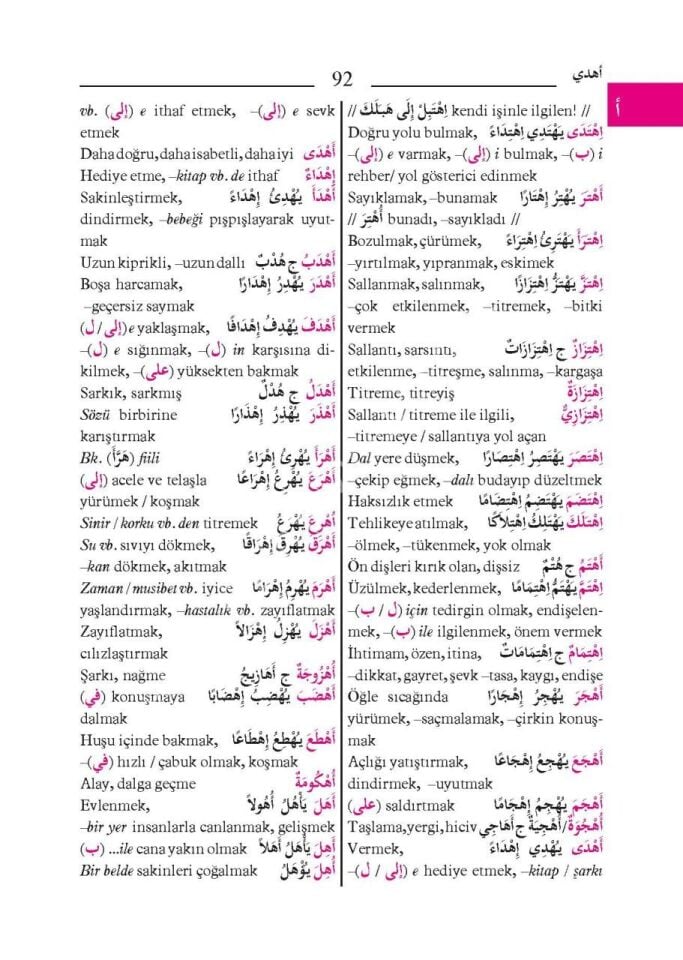 أهدي
92
أ
// اِهْتَبِلْ إِلَى هَبَلَكَ kendi işinle ilgilen! //
اِهْتَدَى يَهْتَدِي اِهْتِدَاءً Doğru yolu bulmak,
–(إلى) e varmak, –(إلى) i bulmak, –(ب) i
rehber/ yol gösterici edinmek
أَهْتَرَ يُهْتِرُ إِهْتَارًا Sayıklamak, –bunamak
// أُهْتِرَ bunadı, –sayıkladı //
اِهْتَرَأَ يَهْتَرِئُ اِهْتِرَاءً Bozulmak, çürümek,
–yırtılmak, yıpranmak, eskimek
اِهْتَزَّ يَهْتَزُّ اِهْتِزَازًا Sallanmak, salınmak,
–çok etkilenmek, –titremek, –bitki
vermek
اِهْتِزَازٌ ج اِهْتِزَازَاتٌ Sallantı, sarsıntı,
etkilenme, –titreşme, salınma, –kargaşa
اِهْتِزَازَةٌ Titreme, titreyiş
اِهْتِزَازِيٌّ Sallantı / titreme ile ilgili,
–titremeye / sallantıya yol açan
اِهْتَصَرَ يَهْتَصِرُ اِهْتِصَارًا Dal yere düşmek,
–çekip eğmek, –dalı budayıp düzeltmek
اِهْتَضَمَ يَهْتَضِمُ اِهْتِضَامًا Haksızlık etmek
اِهْتَلَكَ يَهْتَلِكُ اِهْتِلَاكًا Tehlikeye atılmak,
–ölmek, –tükenmek, yok olmak
أَهْتَمُ ج هُتْمٌ Ön dişleri kırık olan, dişsiz
اِهْتَمَّ يَهْتَمُّ اِهْتِمَامًا Üzülmek, kederlenmek,
–(ل / ب) için tedirgin olmak, endişelen-
mek, –(ب) ile ilgilenmek, önem vermek
اِهْتِمَامٌ ج اِهْتِمَامَاتٌ İhtimam, özen, itina,
–dikkat, gayret, şevk –tasa, kaygı, endişe
أَهْجَرَ يُهْجِرُ إِهْجَارًا Öğle sıcağında
yürümek, –saçmalamak, –çirkin konuş-
mak
أَهْجَعَ يُهْجِعُ إِهْجَاعًا Açlığı yatıştırmak,
dindirmek, –uyutmak
أَهْجَمَ يُهْجِمُ إِهْجَامًا (على) saldırtmak
أُهْجُوَةٌ/أُهْجِيَةٌ ج أَهَاجِي Taşlama, yergi, hiciv
أَهْدَى يُهْدِي إِهْدَاءً Vermek,
–(إلى / ل) e hediye etmek, –kitap / şarkı
vb. (إلى) e ithaf etmek, –(إلى) e sevk
etmek
أَهْدَى Daha doğru, daha isabetli, daha iyi
إِهْدَاءٌ Hediye etme, –kitap vb. de ithaf
أَهْدَأَ يُهْدِئُ إِهْدَاءً Sakinleştirmek,
dindirmek, –bebeği pışpışlayarak uyut-
mak
أَهْدَبُ ج هُدْبٌ Uzun kiprikli, –uzun dallı
أَهْدَرَ يُهْدِرُ إِهْدَارًا Boşa harcamak,
–geçersiz saymak
أَهْدَفَ يُهْدِفُ إِهْدَافًا (إلى/ ل) e yaklaşmak,
–(ل) e sığınmak, –(ل) in karşısına di-
kilmek, –(على) yüksekten bakmak
أَهْدَلُ ج هُدْلٌ Sarkık, sarkmış
أَهْذَرَ يُهْذِرُ إِهْذَارًا Sözü birbirine
karıştırmak
أَهْرَأَ يُهْرِئُ إِهْرَاءً Bk. (هَرَّأَ) fiili
أَهْرَعَ يُهْرِعُ إِهْرَاعًا acele ve telaşla (إلى)
yürümek / koşmak
أُهْرِعَ يُهْرَعُ Sinir / korku vb. den titremek
أَهْرَقَ يُهْرِقُ إِهْرَاقًا Su vb. sıvıyı dökmek,
–kan dökmek, akıtmak
أَهْرَمَ يُهْرِمُ إِهْرَامًا Zaman / musibet vb. iyice
yaşlandırmak, –hastalık vb. zayıflatmak
أَهْزَلَ يُهْزِلُ إِهْزَالاً Zayıflatmak,
cılızlaştırmak
أُهْزُوجَةٌ ج أَهَازِيجُ Şarkı, nağme
أَهْضَبَ يُهْضِبُ إِهْضَابًا (في) konuşmaya
dalmak
أَهْطَعَ يُهْطِعُ إِهْطَاعًا Huşu içinde bakmak,
–(في) hızlı / çabuk olmak, koşmak
أُهْكُومَةٌ Alay, dalga geçme
أَهَلَ يَأْهُلُ أُهُولاً Evlenmek,
–bir yer insanlarla canlanmak, gelişmek
أَهِلَ يَأْهَلُ أَهَلاً (ب) ...ile cana yakın olmak
أُهِلَ يُؤْهَلُ Bir belde sakinleri çoğalmak